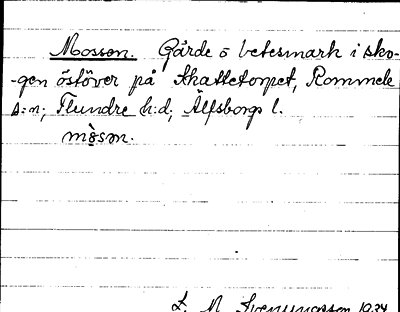 Mossen. Gärde o betesmark i sko-
-gen östöver på Skattetorpet, Rommele
s:n; Flundre h:d; Älfsborgs l.
mòsən.
L. M. Svenungsson 1934